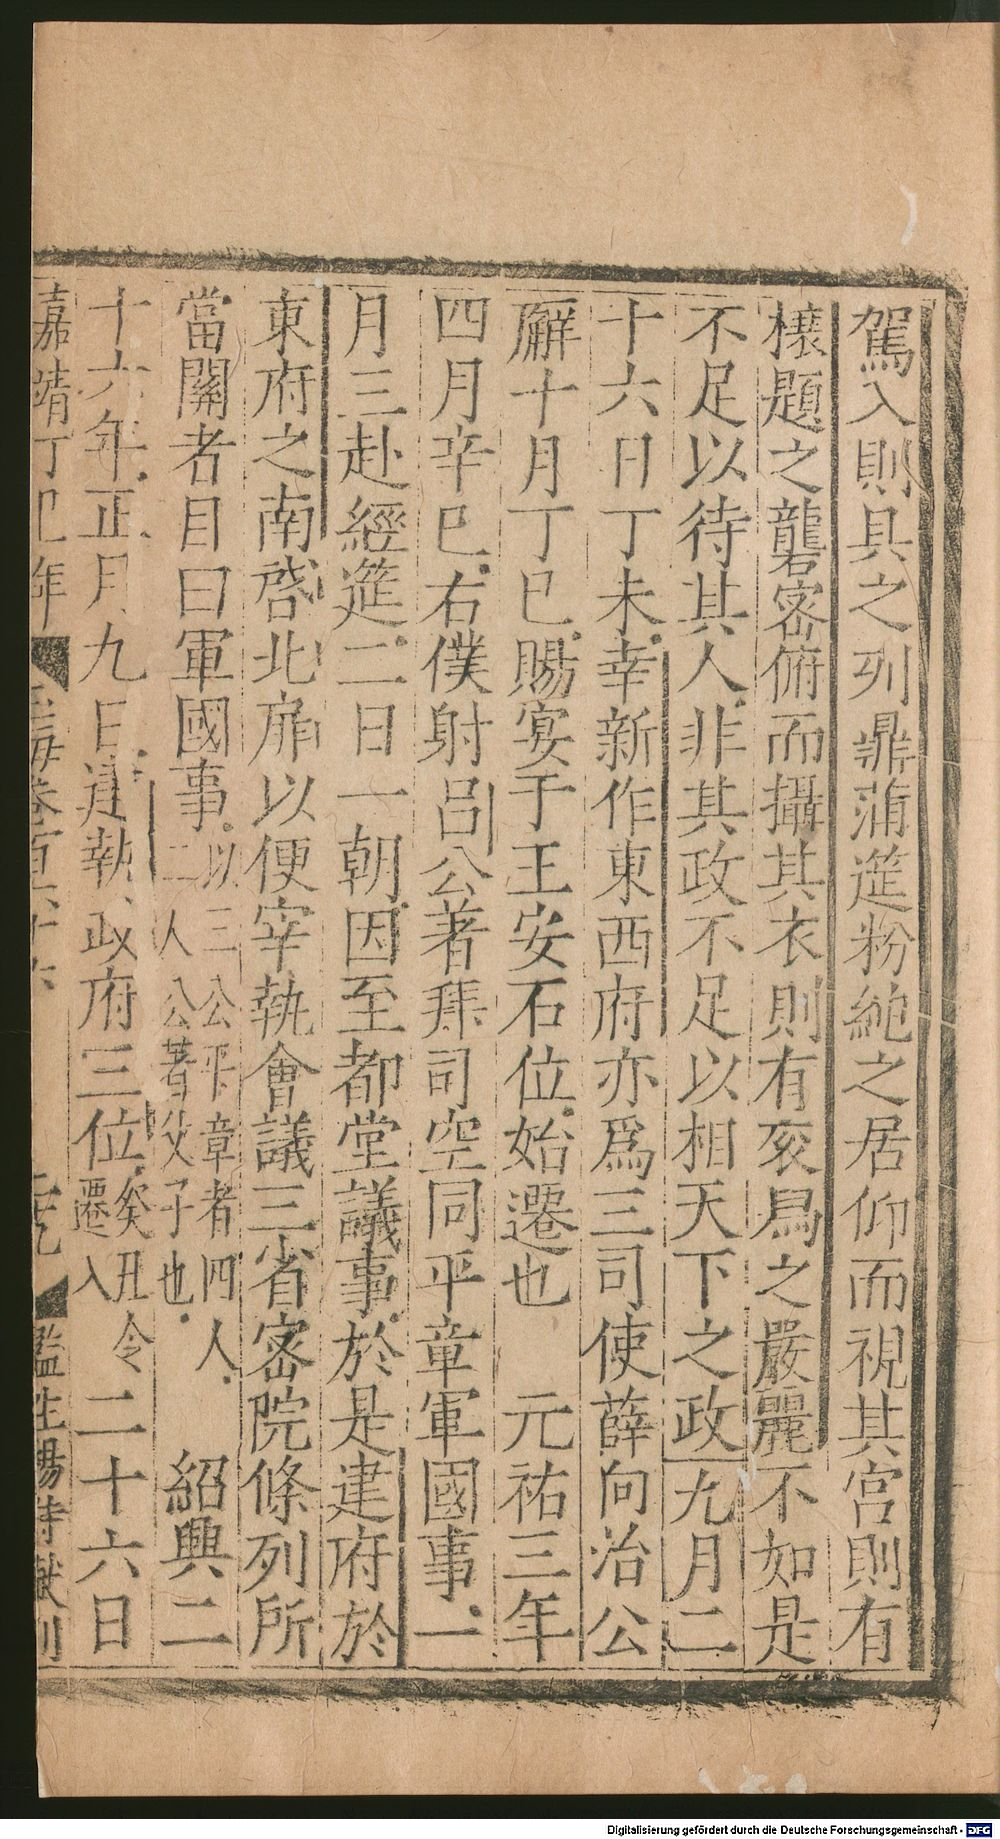 駕入則具之列鼎蒲筵粉純之居仰而視其宮則有
榱題之礱密俯而攝其衣則有袤舄之嚴麗不如是
不足以待其人非其政不足以相天下之政九月二
十六日丁未幸新作東西府亦爲三司使薛向治公
廨十月丁巳賜宴于王安石位始遷也 元祐三年
四月辛巳右僕射呂公著拜司空同平章軍國事一
月三赴經筵二日一朝因至都堂議事於是建府於
東府之南啓北扉以便宰執會議三省密院條列所
當關者目曰軍國事以三公平章者四人二人公著父子也 紹興二
十六年正月九日建執政府三位癸丑令遷入二十六日
嘉靖丁巳年 玉海卷百六十六 監生楊時獻刊
Digitalisierung gefördert durch die Deutsche Forschungsgemeinschaft - DFG